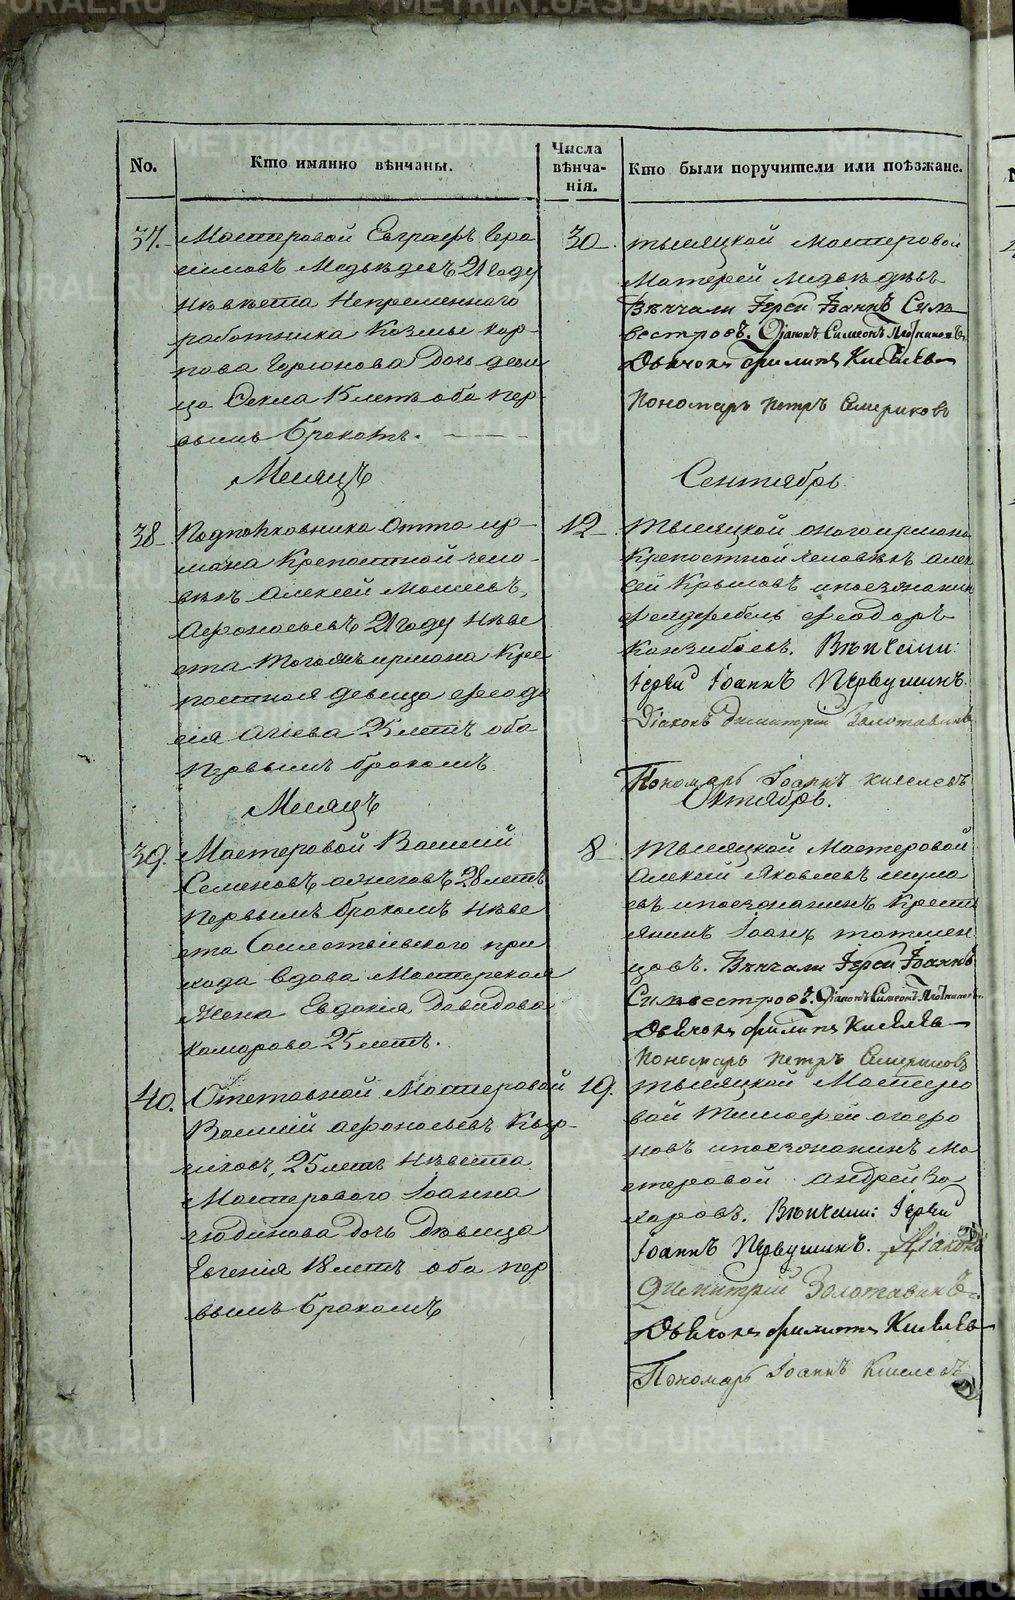 No.
Кто имянно вѣнчаны.
Числа
вѣнча-
нія.
Кто были поручители или поѣзжане.
37.
Мастеровой Евграфъ Гера
симовъ Медведевъ 21 году
Невѣста Непременного
работника Козмы кар-
пова дочь деви
ца Фекла 15 летъ оба пер
вымъ бракомъ.
30.
тысяцкой мастеровой
Медведевъ
Вѣнчали Іерей Іоаннъ Силь
вестровъ. Діаконъ Симеонъ Плотниковъ
Дьячокъ Филипъ Киселевъ
Пономарь Петръ
Месяцъ
Сентябрь
38
Подполковника Отта ир-
мана Крепостной чело-
векъ Алексей Моисеевъ
Афонасьевъ 21 году Неве
ста тогожъ ирмана Кре
постная девица Феодо
сія 25 летъ оба
первымъ бракомъ
12
Тысяцкой оного ирмана
Крепостной человекъ Алек
сей Крыловъ и поезжанин
Фелдфебель Феодоръ
Вѣнчали:
Іерей Іоаннъ Первушинъ.
Діаконъ Димитрій Золотавинъ
Пономарь Іоаннъ Киселевъ
Месяцъ
Октябрь.
39.
Мастеровой Василий
Семеновъ 28 летъ
первымъ бракомъ Неве
ста Сошествіевского при
хода вдова Мастерская
Жена Евдокія Давидова
Комарова 25 летъ.
8
Тысяцкой Мастеровой
Алексей Яковлевъ
и поезжанинъ Крестъ
янинъ Іоанъ
Вѣнчали Іерей Іоаннъ
Сильвестровъ. Діаконъ Симеонъ Плотниковъ
Дьячокъ Филипъ Киселевъ
Пономарь Петръ
40.
Отставной Мастеровой
Василий Афонасьевъ
25 летъ Невеста
Мастерового Іоанна
дочь девица
Евгения 18 летъ оба пер
вымъ бракомъ
19.
тысяцкой Мастеро
вой Тимофей
и поезжанинъ Ма
стеровой Андрей За
харовъ. Вѣнчали: Іерей
Іоаннъ Первушинъ. Діаконъ
Димитрій Золотавинъ
Дьячокъ Филипъ Киселевъ
Пономарь Іоаннъ Киселевъ
METRIKI.GASO-URAL.RU